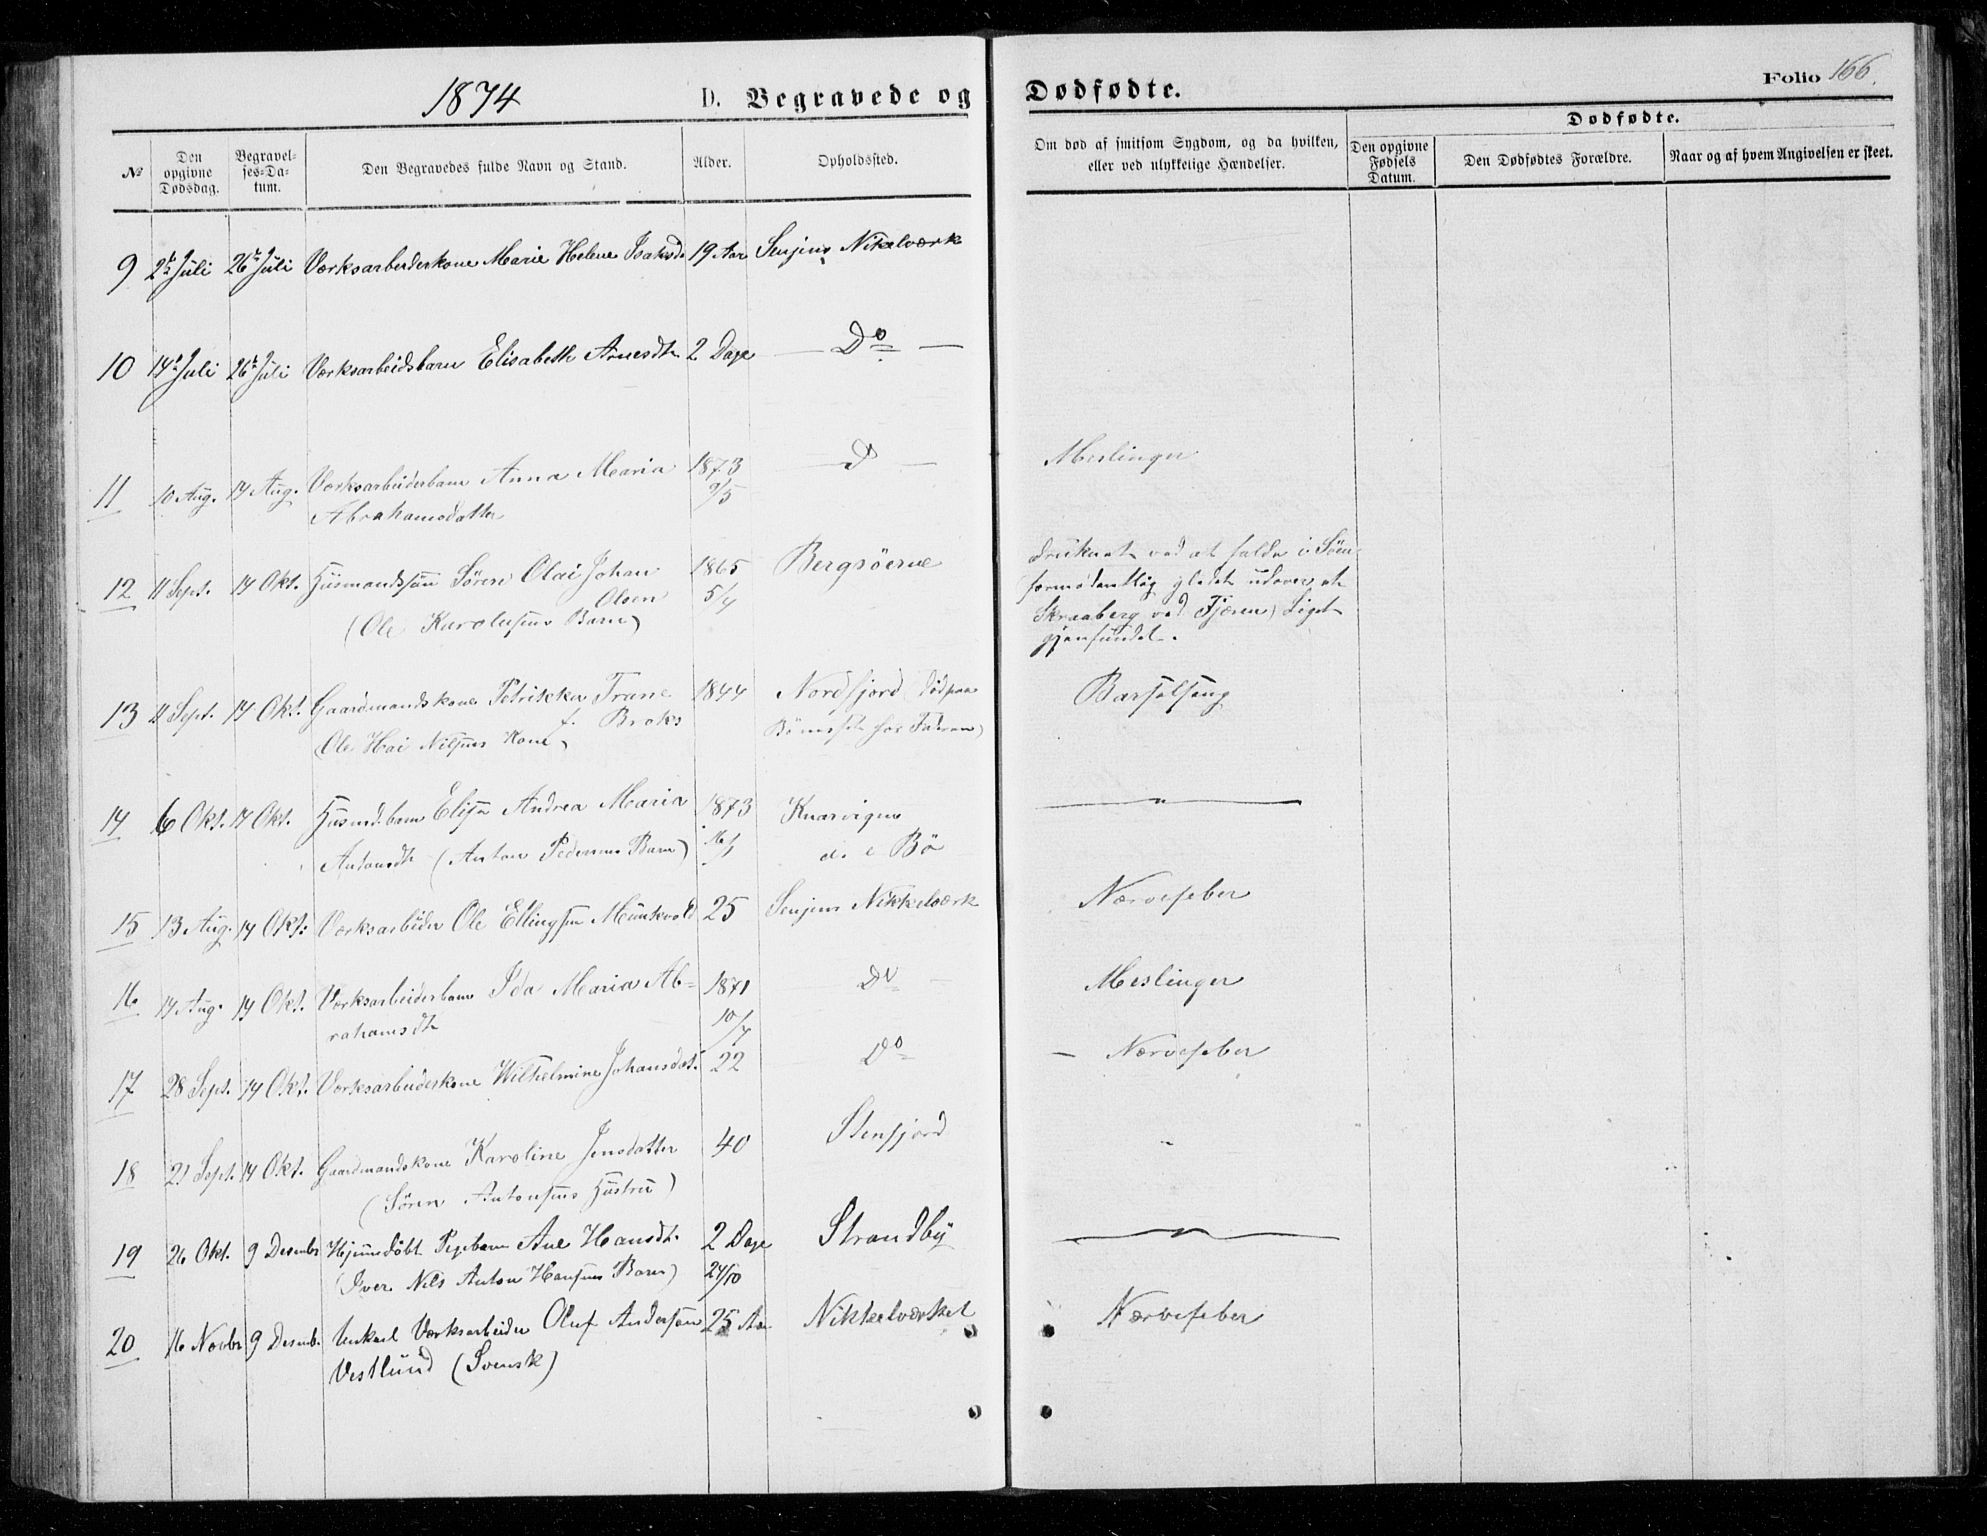 1874
D. Begravede og Dødfødte.
Folio 166.
№
Den opgivne Dødsdag.
Begravelses-Datum.
Den Begravedes fulde Navn og Stand.
Alder.
Opholdssted.
Om død af smitsom Sygdom, og da hvilken, eller ved ulykkelige Hændelser.
Dødfødte.
Den opgivne Fødsels Datum.
Den Dødfødtes Forældre.
Naar og af hvem Angivelsen er skeet.
9 2 Juli 26 Juli Værksarbeiderkone Marie Helene Isaksd. 19 Aar Senjens Nikelværk
10 14 Juli 26 Juli Værksarbeidsbarn Elisabeth Arnesdtr 2 Dage — Do —
11 10 Aug. 14 Aug. Værksarbeiderbarn Anna Maria 1873 — Do — Meslinger
Abrahamsdatter 9/5
12 11 Sept. 14 Okt. Husmandssøn Søren Olai Johan 1865 Bergsöerne druknet ved at falde i Søen
Olsen 5/4 formodentlig gledet udover et
(Ole Karolusens Barn) Skraaberg ved Fjæren) Liget
gjenfundet.
13 11 Sept. 14 Okt. Gaardmandskone Petrikka Trane 1844 Nordfjord (død paa Barselseng
f. Broks
(Ole Hai Nilsens Kone) hos Faderen)
14 6 Okt. 14 Okt. Husmd.barn Elise Andrea Maria 1873 Knarvigen — " —
Antonsdtr (Anton Pedersens Barn) 16/1 Bö
15 13 Aug. 14 Okt. Værksarbeider Ole Ellingsen Munkvold 25 Senjens Nikkelværk Nærvefeber
16 14 Aug. 14 Okt. Værksarbeiderbarn Ida Maria Ab- 1871 Do — Meslinger
rahamsdtr 10/7
17 28 Sept. 14 Okt. Værksarbeiderkone Wilhelmine Johansdat. 22 Do — Nærvefeber
18 21 Sept. 14 Okt. Gaardmandskone Karoline Jensdatter 40 Stenfjord "
(Søren Antonsens Hustru)
19 26 Okt. 9 Desembr Hjemmedöbt Pigebarn Ane Hansdtr. 2 Dage Strandby — " —
(Iver Nils Anton Hansens Barn) 24/10
20 16 Novbr 9 Desemb. Unkarl Værksarbeider Oluf Andersson 25 Aar Nikkelværket Nærvefeber
Vestlund (Svensk)